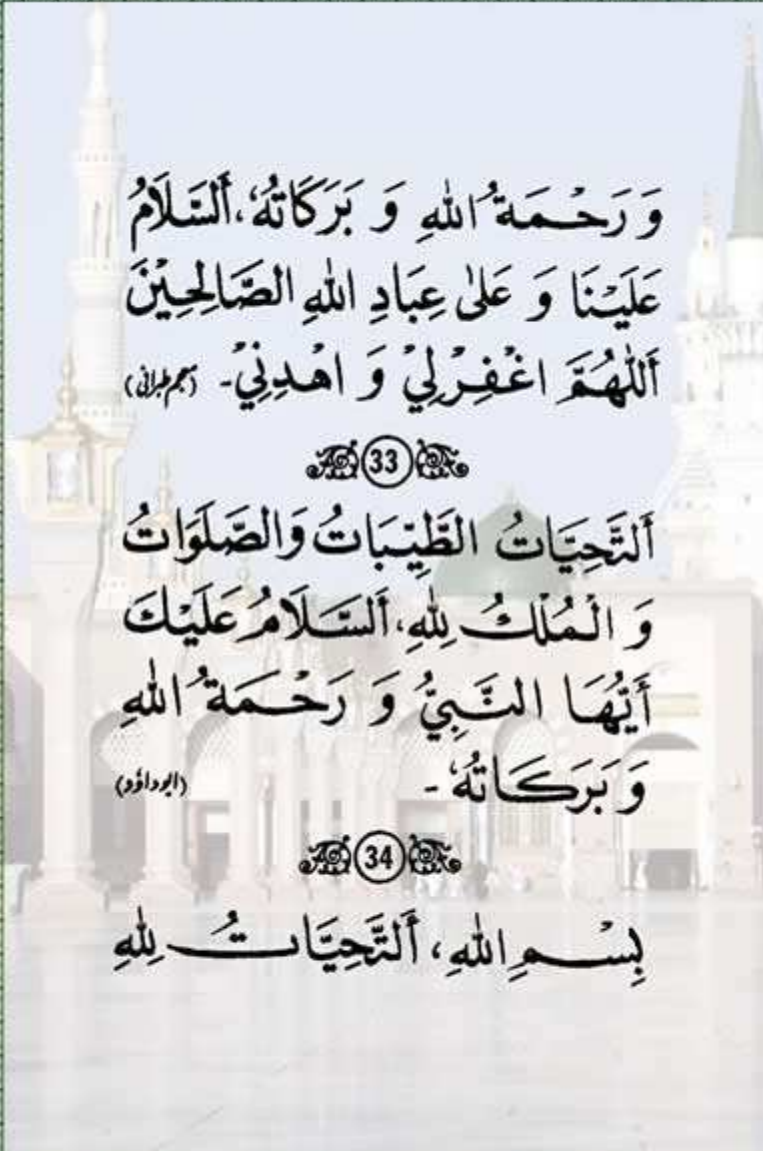 وَ رَحْمَةُ اللهِ وَ بَرَكَاتُهُ، أَلسَّلَامُ
عَلَيْنَا وَ عَلىٰ عِبَادِ اللهِ الصَّالِحِيْنَ
أَللّٰهُمَّ اغْفِرْلِيْ وَ اهْدِنِيْ۔ (معجم طبرانی)
33
أَلتَّحِيَّاتُ الطَّيِّبَاتُ وَالصَّلَوَاتُ
وَ الْمُلْكُ لِلّٰهِ، أَلسَّلَامُ عَلَيْكَ
أَيُّهَا النَّبِيُّ وَ رَحْمَةُ اللهِ
وَبَرَكَاتُهُ۔ (ابوداؤد)
34
بِسْمِ اللهِ، أَلتَّحِيَّاتُ لِلّٰهِ